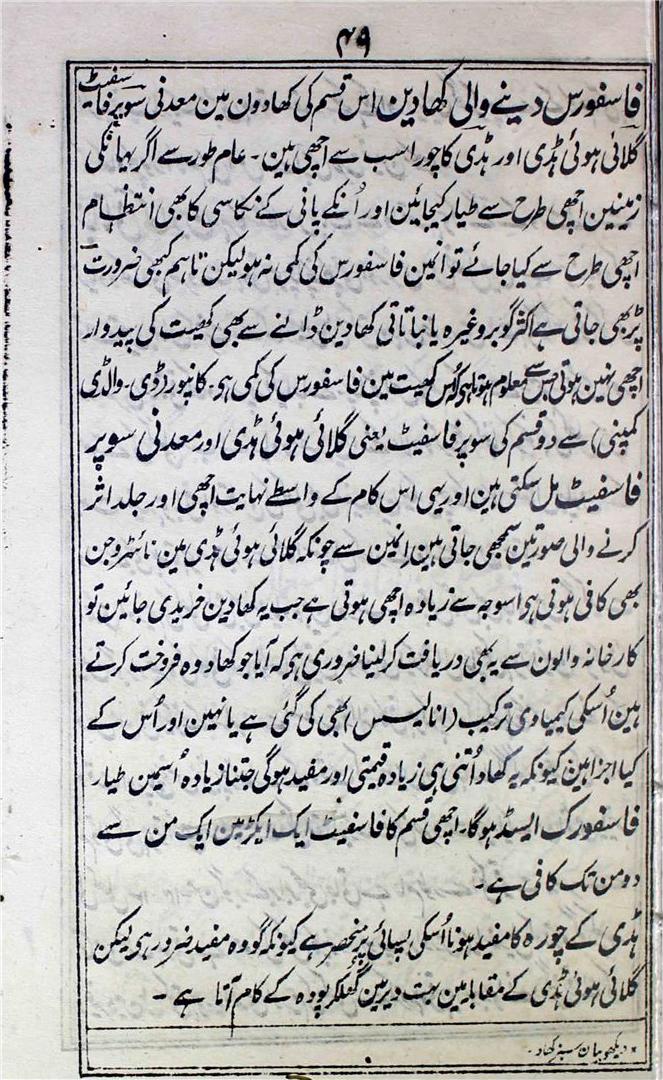 ۴۹
فاسفورس دینے والی کھادین اس قسم کی کھادون مین معدنی سوپرفا سفیٹ
گلائی ہوئی ہڈی اور ہڈی کا چورا سب سے اچھی ہین ۔ عام طور سے اگر یہانکی
زمینین اچھی طرح سے طیار کیجائین اور اُنکے پانی کے نکاسی کا بھی انتظام
اچھی طرح سے کیا جائے تو انمین فاسفورس کی کمی نہ ہو لیکن تاہم کبھی ضرورت
پڑبھی جاتی ہے اکثر گوبر وغیرہ یا نباتاتی کھادین ڈالنے سے بھی کھیت کی پیدوار
اچھی نہین ہوتی جس سے معلوم ہوتا ہی کہ اُس کھیت مین فاسفورس کی کمی ہی۔ کانپور (ڈی۔ والڈی
کمپنی) سے دو قسم کی سوپر فاسفیٹ یعنی گلائی ہوئی ہڈی اور معدنی سوپر
فاسفیٹ مل سکتی ہین اور یہی اس کام کے واسطے نہایت اچھی اور جلد اثر
کرنے والی صورتین سمجھی جاتی ہین اِنمین سے چونکہ گلائی ہوئی ہڈی مین نائٹروجن
بھی کافی ہوتی ہی اسوجہ سے زیادہ اچھی ہوتی ہے جب یہ کھادین خریدی جائین تو
کارخانہ والون سے یہ بھی دریافت کرلینا ضروری ہی کہ آیا جو کھاد وہ فروخت کرتے
ہین اُسکی کیمیاوی ترکیب (انالیسس) بھی کی گئی ہے یا نہین اور اُس کے
کیا اجزا ہین کیونکہ یہ کھاد اُتنی ہی زیادہ قیمتی اور مفید ہوگی جتنا زیادہ اُسمین طیار
فاسفورک ایسڈ ہوگا۔ اچھی قسم کا فاسفیٹ ایک ایکڑ مین ایک من سے
دو من تک کافی ہے ۔
ہڈی کے چورہ کا مفید ہونا اُسکی پسائی پر منحصر ہے کیونکہ گو وہ مفید ضرور ہی لیکن
گلائی ہوئی ہڈی کے مقابلہ مین بہت دیر مین گھلکر پودہ کے کام آتا ہے ۔
* دیکھو بیان سبز کھاد ۔